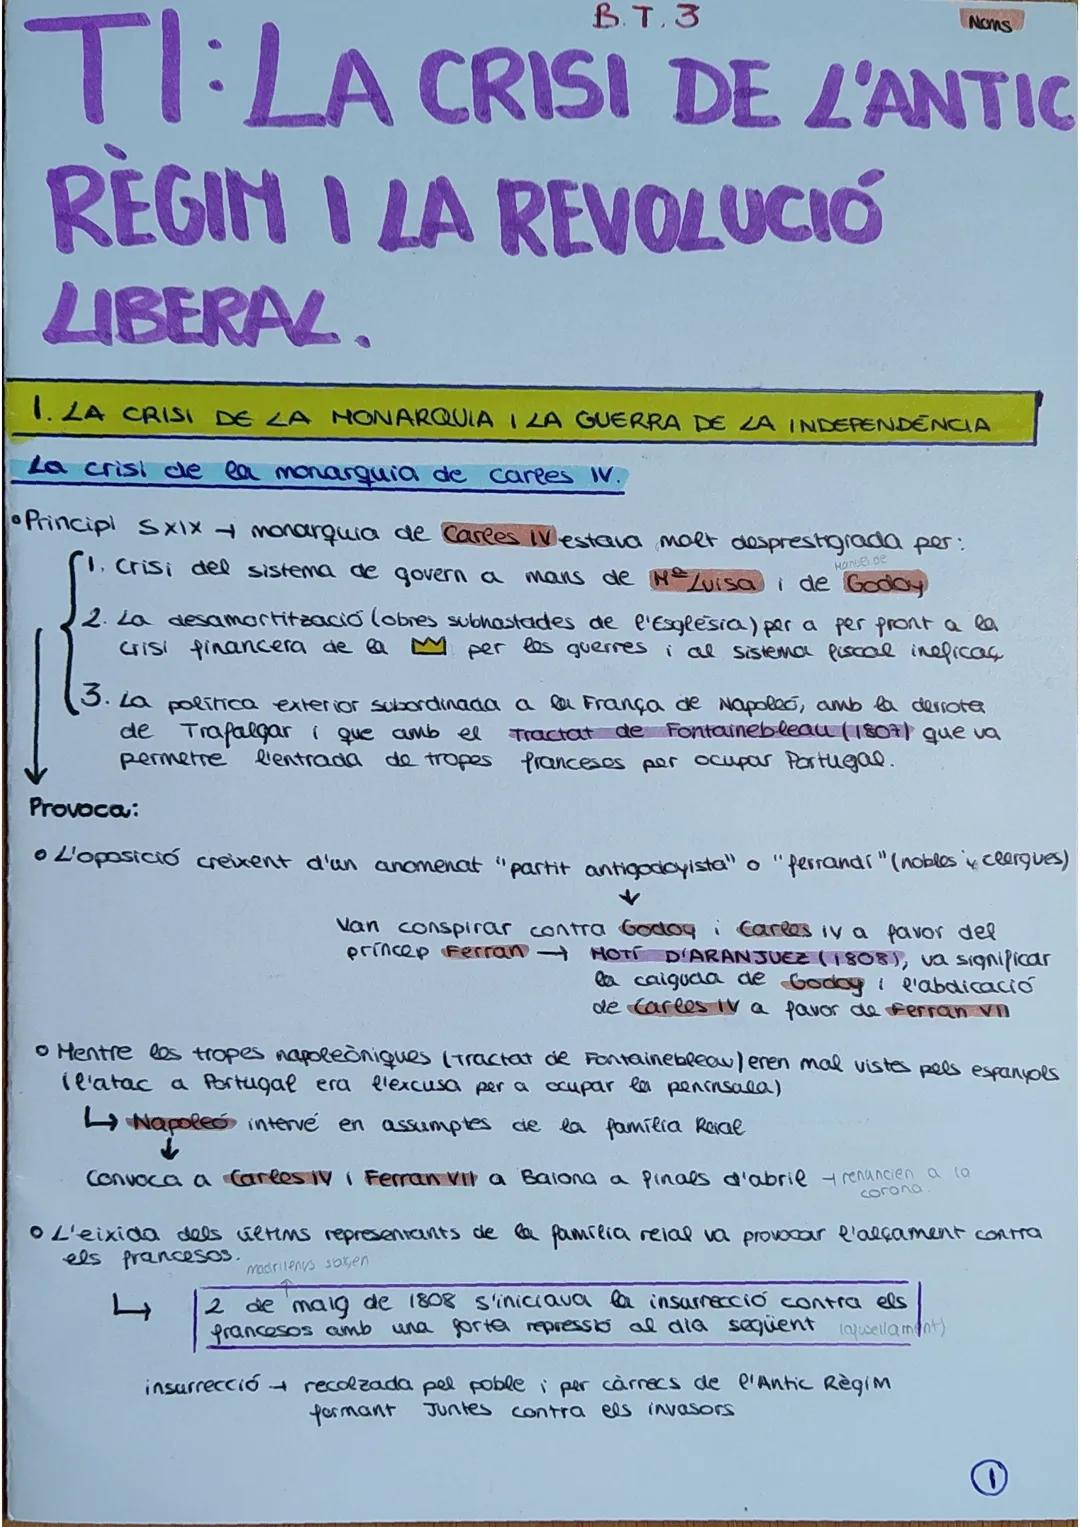 B.T.3
Noms
T1: LA CRISI DE L'ANTIC
RÈGIM I LA REVOLUCIÓ
LIBERAL.
1. LA CRISI DE LA MONARQUIA I LA GUERRA DE LA INDEPENDÈNCIA
La crisi de la monarquia de Carles IV.
• Principi S XIX → monarquia de Carles IV estava molt desprestigiada per:
Manuel de
1. Crisi del sistema de govern a mans de Mª Luisa i de Godoy
2. La desamortització (obres subhastades de l'Església) per a fer front a la
crisi financera de la per les guerres i al sistema fiscal ineficaç
3. La política exterior subordinada a la França de Napoleó, amb la derrota
de Trafalgar i que amb el Tractat de Fontainebleau (1807) que va
permetre l'entrada de tropes franceses per ocupar Portugal.
Provoca:
• L'oposició creixent d'un anomenat "partit antigodoyista" o "ferrandí" (nobles i clergues)
↓
Van conspirar contra Godoy i Carles IV a favor del
príncep Ferran → MOTÍ D'ARANJUEZ (1808), va significar
la caiguda de Godoy i l'abdicació
de Carles IV a favor de Ferran VII
• Mentre les tropes napoleòniques (Tractat de Fontainebleau) eren mal vistes pels espanyols
(l'atac a Portugal era l'excusa per a ocupar la península)
↳ Napoleó intervé en assumptes de la família Reial
↓
Convoca a Carles IV i Ferran VII a Baiona a finals d'abril → renuncien a la
corona.
• L'eixida dels últims representants de la família reial va provocar l'alçament contra
els francesos.
madrilenys
↳ 2 de maig de 1808 s'iniciava la insurrecció contra els
francesos amb una forta repressió al dia següent (afusellament)
insurrecció → recolzada pel poble i per càrrecs de l'Antic Règim
formant Juntes contra els invasors
1